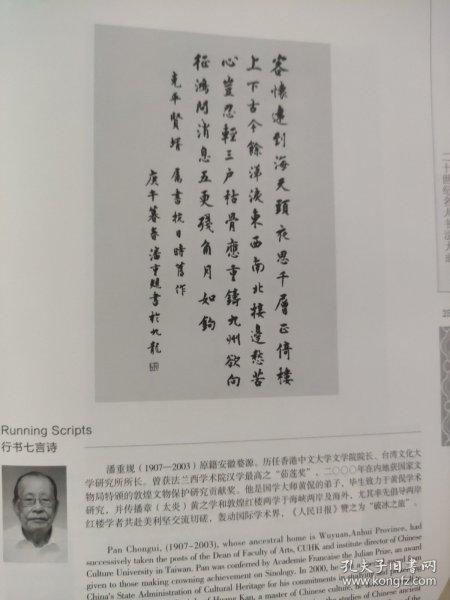 客怀连到海天头夜思千层正倚楼
上下古今馀洋泪东西南北接边愁苦
心岂忍轻三户枯骨应重铸九州欲向
征鸿问消息五更残角月如钩
克平贤婿 属书抗日时旧作
庚午暮春潘重规书于九龙
Running Scripts
行书七言诗
潘重规(1907—2003)原籍安徽婺源。历任香港中文大学文学院院长、台湾文化大
学研究所所长。曾获法兰西学术院汉学最高之“茹莲奖”,二〇〇〇年在内地获国家文
物局特颁的敦煌文物保护研究贡献奖。他是国学大师黄侃的弟子,毕生致力于黄侃学术
研究,并传播章(太炎)黄之学和敦煌红楼两学于海峡两岸及海外,尤其率先倡导两岸
红楼学者共赴美利坚交流切磋,轰动国际学术界,《人民日报》赞之为“破冰之旅”。
Pan Chongui, (1907-2003), whose ancestral home is Wuyuan, Anhui Province, had
successively taken the posts of the Dean of Faculty of Arts, CUHK and institute director of Chinese
Culture University in Taiwan. Pan was conferred by Academie Francaise the Julian Prize, an award
given to those making crowning achievement on Sinology. In 2000, he
China's State Administration of Cultural Heritage for his commitments
of Huang Kan, a master of Chinese culture, he
studies of ancient
孔夫子旧书网